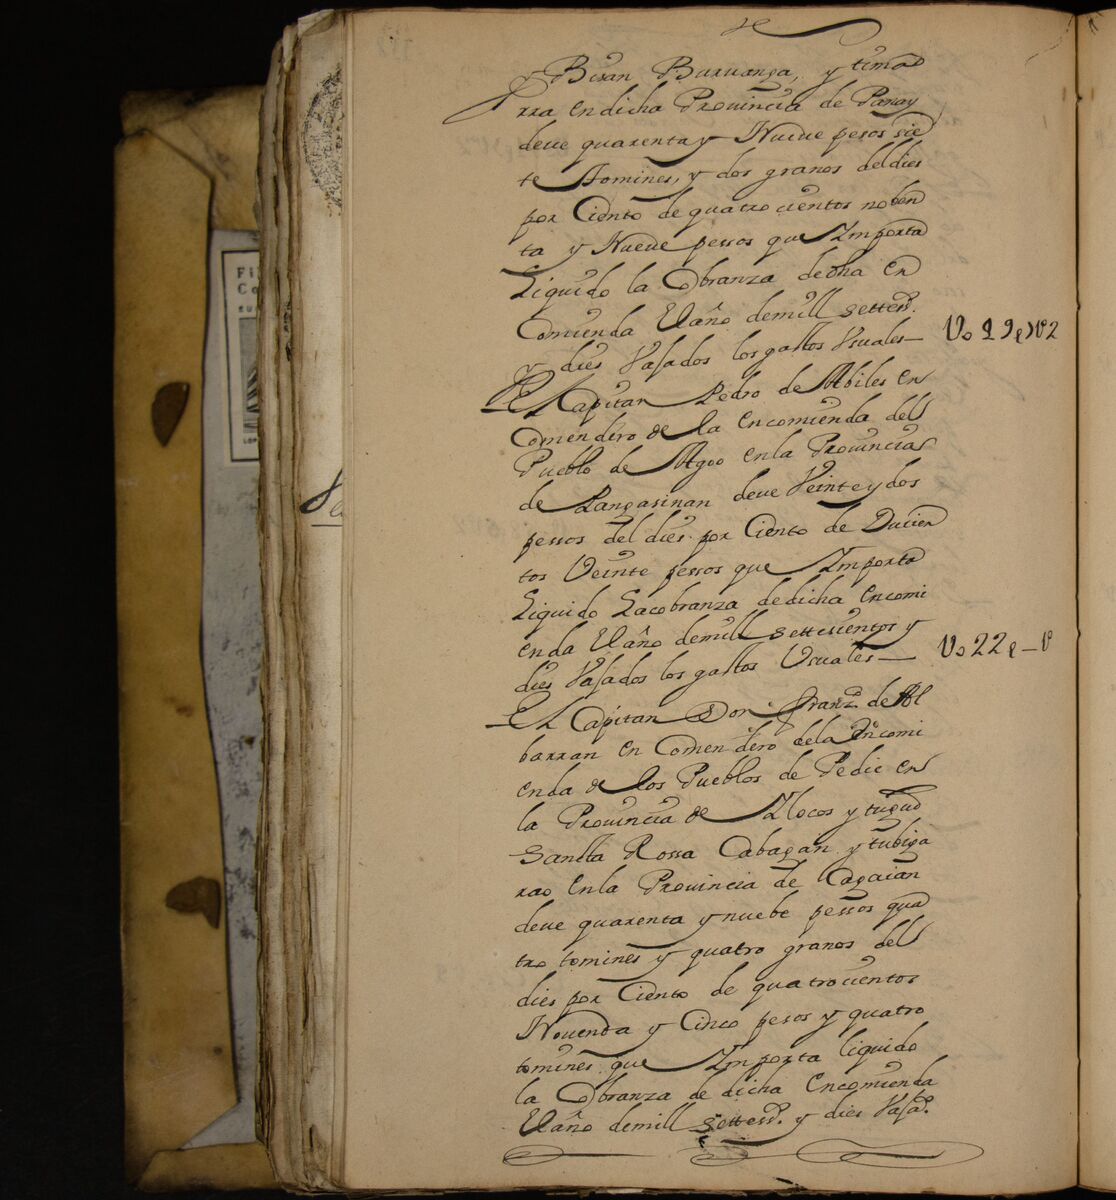 y Bisan Buruanga, y tima
rra en dicha Prouincia de Panay
deue quarenta y Nueue pesos sie
te tomines, y dos granos del dies
por Ciento de quatro cientos noben
ta y Nueue pessos que Importa
Liquido la Cobranza de dha En
Comienda El año de mill settesos.
y dies Vajados los gastos Vsuales—
El Capitan Pedro de Abiles en
Comendero de la encomienda del
Pueblo de Agoo en la Prouincia
de Pangasinan deue Veinte y dos
pessos del dies por Ciento de Ducien
tos Veinte pessos que Importa
Liquido La cobranza de dicha encomi
enda El año de mill settecientos y
dies Vajados los gastos Vsuales—
El Capitan Don Franco de Al
barran en Comendero de la Encomi
enda de los Pueblos de Pedic en
la Prouincia de Ylocos y
Santta Rossa Cabagan y tubiga
rao en la Prouincia de Cagaian
deue quarenta y nuebe pessos qua
tro tomines y quatro granos del
dies por Ciento de quatrocientos
Nouenta y Cinco pesos y quatro
tomines que Importa liquido
la Cobranza de dicha Encomienda
El año de mill settesos. y dies Vajads.
022p
Fi
Co
su